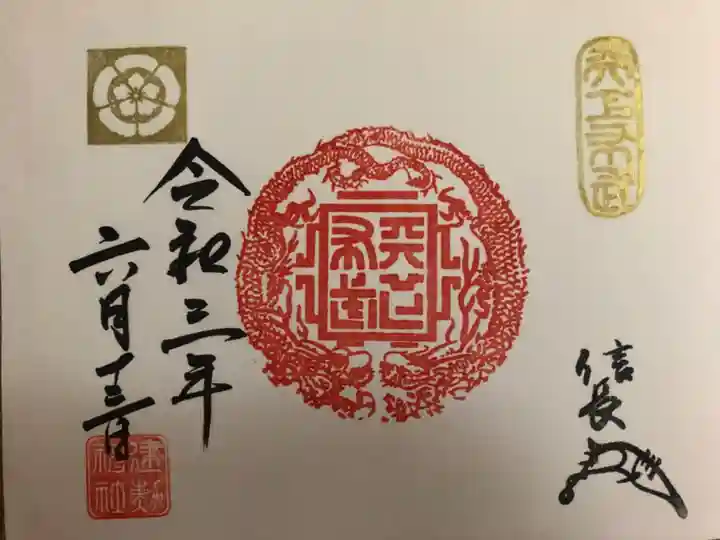 天下布武
信長
天下布武
令和三年
六月十三日
建勲神社